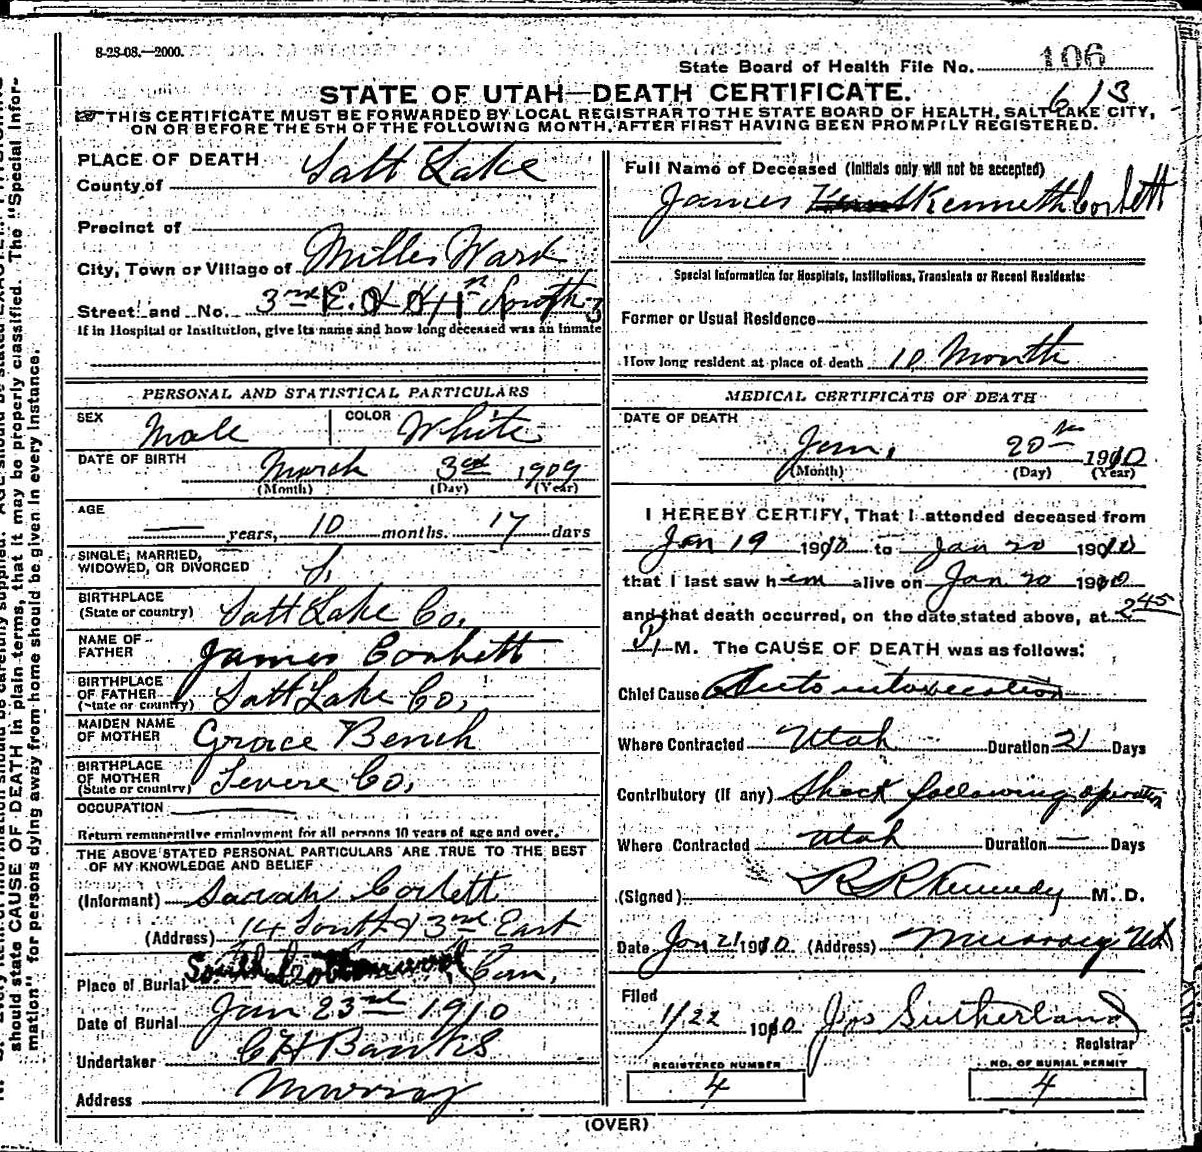 8-28-08.—2000.
State Board of Health File No. 106
613
STATE OF UTAH—DEATH CERTIFICATE.
THIS CERTIFICATE MUST BE FORWARDED BY LOCAL REGISTRAR TO THE STATE BOARD OF HEALTH, SALT LAKE CITY,
ON OR BEFORE THE 5TH OF THE FOLLOWING MONTH, AFTER FIRST HAVING BEEN PROMPTLY REGISTERED.
PLACE OF DEATH
County of Salt Lake
Precinct of
City, Town or Village of Miller Ward
Street and No. 3rd E. & 14th South
If in Hospital or Institution, give its name and how long deceased was an inmate
PERSONAL AND STATISTICAL PARTICULARS
SEX Male COLOR White
DATE OF BIRTH March 3rd 1909
(Month) (Day) (Year)
AGE
— years, 10 months. 17 days
SINGLE, MARRIED,
WIDOWED, OR DIVORCED S.
BIRTHPLACE
(State or country) Salt Lake Co.
NAME OF
FATHER James Corbett
BIRTHPLACE
OF FATHER
(State or country) Salt Lake Co.
MAIDEN NAME
OF MOTHER Grace Bench
BIRTHPLACE
OF MOTHER
(State or country) Severe Co.
OCCUPATION —
Return remunerative employment for all persons 10 years of age and over.
THE ABOVE STATED PERSONAL PARTICULARS ARE TRUE TO THE BEST
OF MY KNOWLEDGE AND BELIEF
(Informant) Sarah Corbett
(Address) 14 South & 3rd East
Place of Burial South Cottonwood Cem.
Date of Burial Jan 23rd 1910
Undertaker C H Banks
Address Murray
Full Name of Deceased (Initials only will not be accepted)
James Kenneth Corbett
Special Information for Hospitals, Institutions, Transients or Recent Residents:
Former or Usual Residence
How long resident at place of death 10 Month
MEDICAL CERTIFICATE OF DEATH
DATE OF DEATH
Jan. 20th 1910
(Month) (Day) (Year)
I HEREBY CERTIFY, That I attended deceased from
Jan 19 1910 to Jan 20 1910
that I last saw him alive on Jan 20 1910
and that death occurred, on the date stated above, at 2 45
P. M. The CAUSE OF DEATH was as follows:
Chief Cause Auto intoxecation
Where Contracted Utah Duration 21 Days
Contributory (if any) Shock following operation
Where Contracted Utah Duration — Days
(Signed) R R Kennedy M. D.
Date Jan 21 1910 (Address) Murray Ut
Filed
1/22 1910 Jos Sutherland
Registrar
REGISTERED NUMBER
4
NO. OF BURIAL PERMIT
4
(OVER)
should state CAUSE OF DEATH in plain terms, that it may be properly classified. The "Special Infor-
mation" for persons dying away from home should be given in every instance.